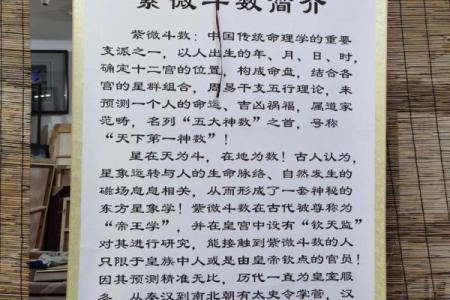 紫微斗数简介
紫微斗数：中国传统命理学的重要
支派之一，以人出生的年、月、日、时，
确定十二宫的位置，构成命盘，结合各
宫的星群组合，周易干支五行理论，来
预测一个人的命运、吉凶祸福，属道家
范畴，名列“五大神数”之首，号称
“天下第一神数”！
星在天为斗，在地为数！古人认为，
星象运转与人的生命脉络、自然发生的
磁场息息相关，从而形成了一套神秘的
东方星象学！紫微斗数在古代被尊称为
“帝王学”，并在皇宫中设有“钦天监”
对其进行研究，能接触到紫微斗数的人
只限于皇族中人或是由皇帝钦点的官员！
因其预测精准无比，历代一直为皇室服
务，从秦汉到南北朝有太史令掌营，汉